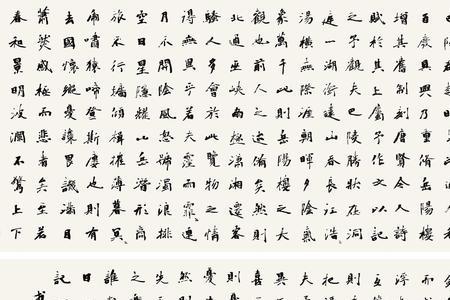 百廢具興乃重修岳陽樓
增其舊制刻唐賢今人詩
賦於其上屬予作文以記
之予觀夫巴陵勝狀在洞
庭一湖銜遠山吞長江浩
湯橫無際涯朝暉夕陰氣
象萬千此則岳陽樓之大
觀也前人之述備矣然則
北通巫峽南極瀟湘遷客
騷人多會於此覽物之情
得無異乎若夫霪雨霏連
月不開陰風怒號濁浪排
空日星隱耀山岳潛形商
旅不行檣傾楫摧薄暮冥
虎嘯猿啼登斯樓也則有
去國懷鄉憂讒畏譏滿目
蕭然感極而悲者矣至若
春和景明波瀾不驚上下
浮
互
而
把
夫
異
喜
則
憂
然
先
之
誰
日
記